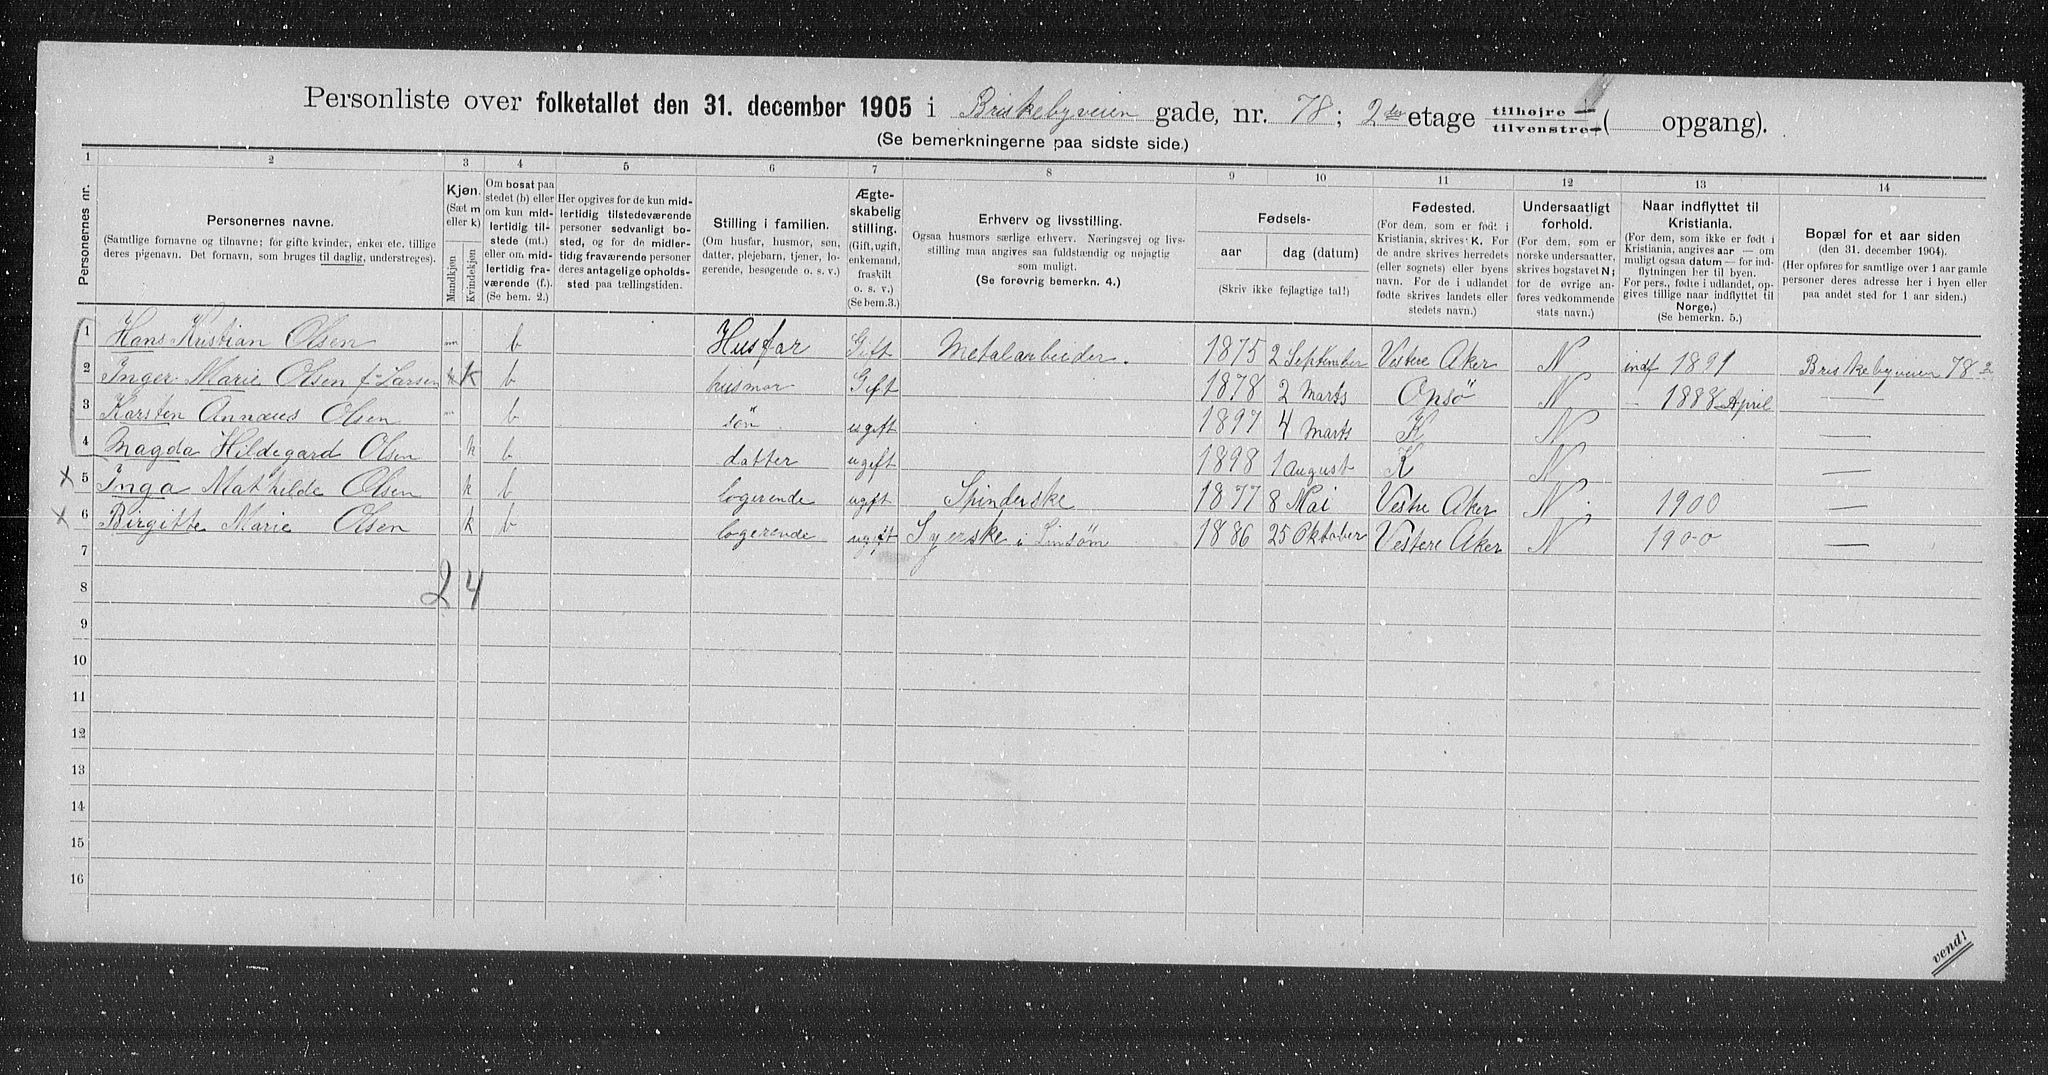 Personliste over folketallet den 31. december 1905 i Briskebyveien gade, nr. 78; 2den etage tilhøjre tilvenstre ( opgang).
(Se bemerkningerne paa sidste side.)
1 2 3 4 5 6 7 8 9 10 11 12 13 14
Personernes nr.
Personernes navne.
(Samtlige fornavne og tilnavne; for gifte kvinder, enker etc. tillige
deres pigenavn. Det fornavn, som bruges til daglig, understreges).
Kjøn.
(Sæt m
eller k)
Mandkjøn
Kvindekjøn
Om bosat paa
stedet (b) eller
om kun mid-
lertidig til-
stede (mt.)
eller om mid-
lertidig fra-
værende (f.).
(Se bem. 2.)
Her opgives for de kun mid-
lertidig tilstedeværende
personer sedvanligt bo-
sted, og for de midler-
tidig fraværende personer
deres antagelige opholds-
sted paa tællingstiden.
Stilling i familien.
(Om husfar, husmor, søn,
datter, plejebarn, tjener, lo-
gerende, besøgende o. s. v.)
Ægte-
skabelig
stilling.
(Gift, ugift,
enkemand,
fraskilt
o. s. v.)
(Se bem.3.)
Erhverv og livsstilling.
Ogsaa husmors særlige erhverv. Næringsvej og livs-
stilling maa angives saa fuldstændig og nøjagtig
som muligt.
(Se forøvrig bemerkn. 4.)
Fødsels-
aar dag (datum)
(Skriv ikke fejlagtige tal!)
Fødested.
(For dem, som er født i
Kristiania, skrives K. For
de andre skrives herredets
(eller sognets) eller byens
navn. For de i udlandet
fødte skrives landets eller
stedets navn.)
Undersaatligt
forhold.
(For dem, som er
norske undersaatter,
skrives bogstavet N;
for de øvrige an-
føres vedkommende
stats navn.)
Naar indflyttet til
Kristiania.
(For dem, som ikke er født i
Kristiania, angives aar — om
muligt ogsaa datum — for ind-
flytningen her til byen.
For pers., fødte i udlandet, op-
gives tillige naar indflyttet til
Norge.)
(Se bemerkn. 5.)
Bopæl for et aar siden
(den 31. december 1904).
(Her opføres for samtlige over 1 aar gamle
personer deres adresse her i byen eller
paa andet sted for 1 aar siden.)
1 Hans Kristian Olsen m b Husfar Gift Metalarbeider. 1875 2 September Vestere Aker N indf 1891 Briskebyveien 78 2
2 Inger Marie Olsen f. Larsen k b husmor Gift 1878 2 Marts Onsö N 1888 April —
3 Karsten Annæus Olsen m b sön ugift 1897 4 Marts K N —
4 Magda Hildegard Olsen k b datter ugift 1898 1 august K N —
x 5 Inga Mathilde Olsen k b logerende ugift Spinderske 1877 8 Mai Vestre Aker N 1900 —
x 6 Birgitte Marie Olsen k b logerende ugift Syerske i Linsöm 1886 25 Oktober Vestere Aker N 1900 —
7
2 4
8
9
10
11
12
13
14
15
16
vend!